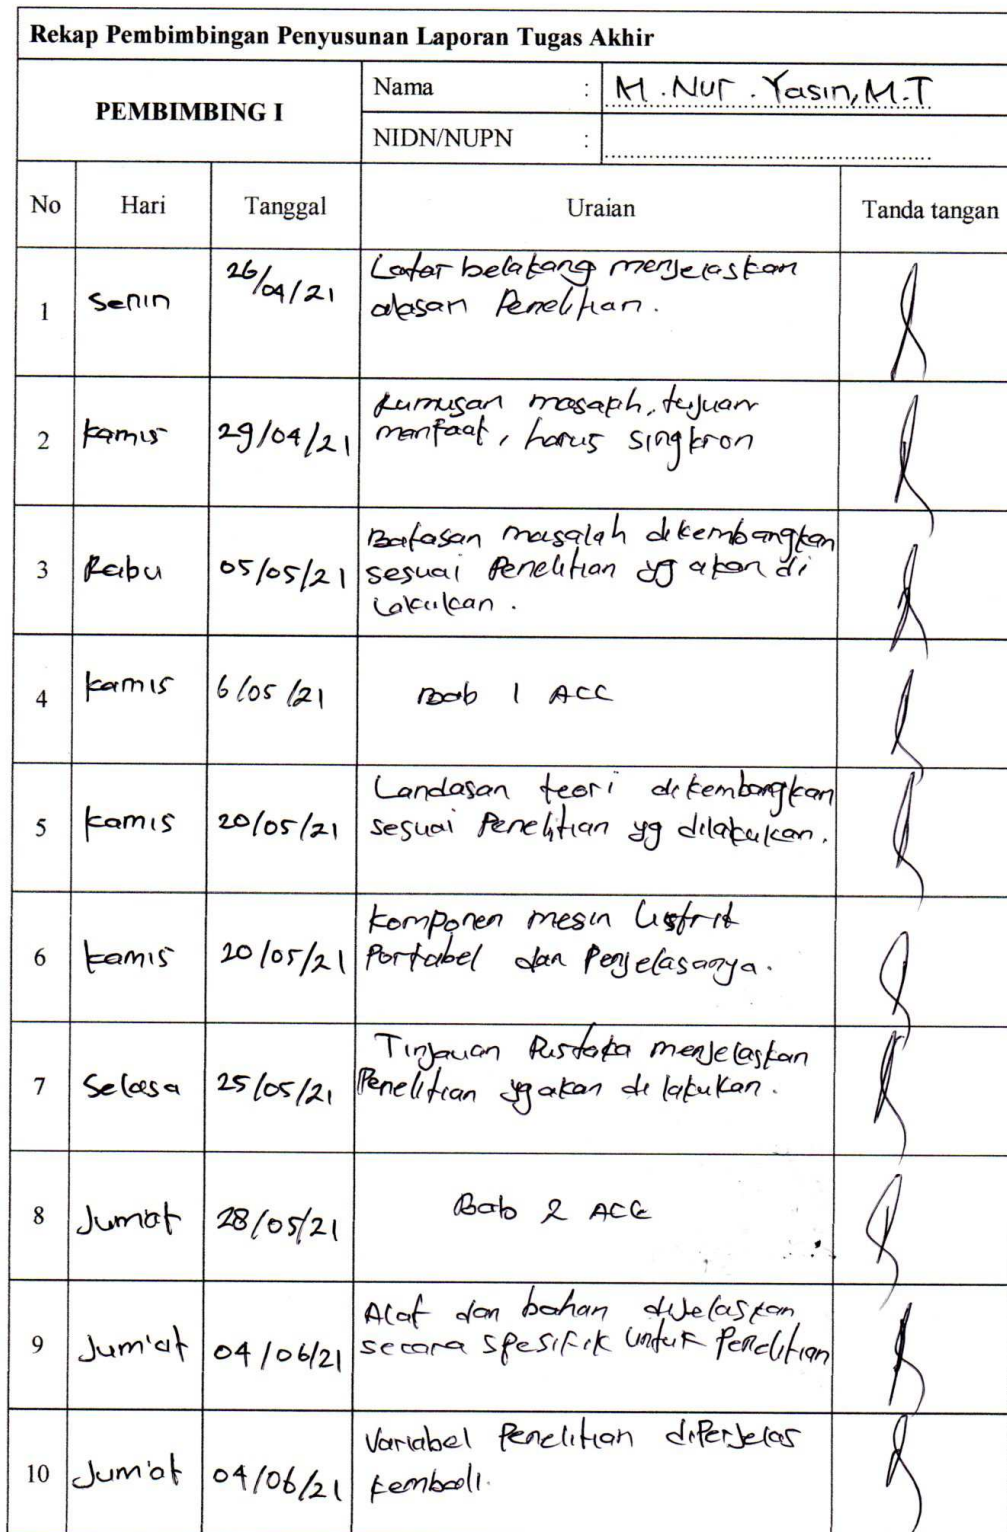 Rekap Pembimbingan Penyusunan Laporan Tugas Akhir
PEMBIMBING I
Nama : M. Nur. Yasin, M.T
NIDN/NUPN :
No Hari Tanggal Uraian Tanda tangan
1 Senin 26/04/21 Latar belakang menjelaskan
alasan Penelitian.
2 Kamis 29/04/21 Rumusan masalah, tujuan
manfaat, harus singkron
3 Rabu 05/05/21 Batasan masalah dikembangkan
sesuai Penelitian yg akan di
lakukan.
4 Kamis 6/05/21 Bab 1 ACC
5 Kamis 20/05/21 Landasan teori dikembangkan
sesuai Penelitian yg dilakukan.
6 Kamis 20/05/21 Komponen mesin listrik
Portabel dan Penjelasanya.
7 Selasa 25/05/21 Tinjauan Pustaka menjelaskan
Penelitian yg akan di lakukan.
8 Jumat 28/05/21 Bab 2 ACC
9 Jum'at 04/06/21 Alat dan bahan dijelaskan
secara spesifik untuk Penelitian
10 Jum'at 04/06/21 Variabel Penelitian diperjelas
kembali.